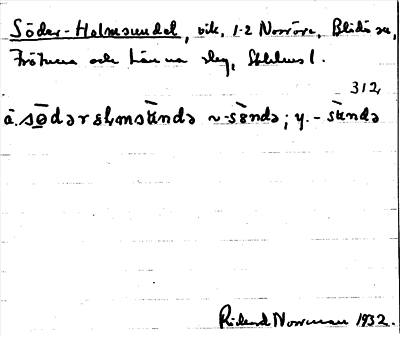 Söder-Holmsundet, vik, 1-2 Norröra, Blidö sn,
Frötuna och Länna slg, Sthlms l.
312
å. sødər əlmsundə ~ -sɵndə; y. - sundə
Rickard Norrman 1932.